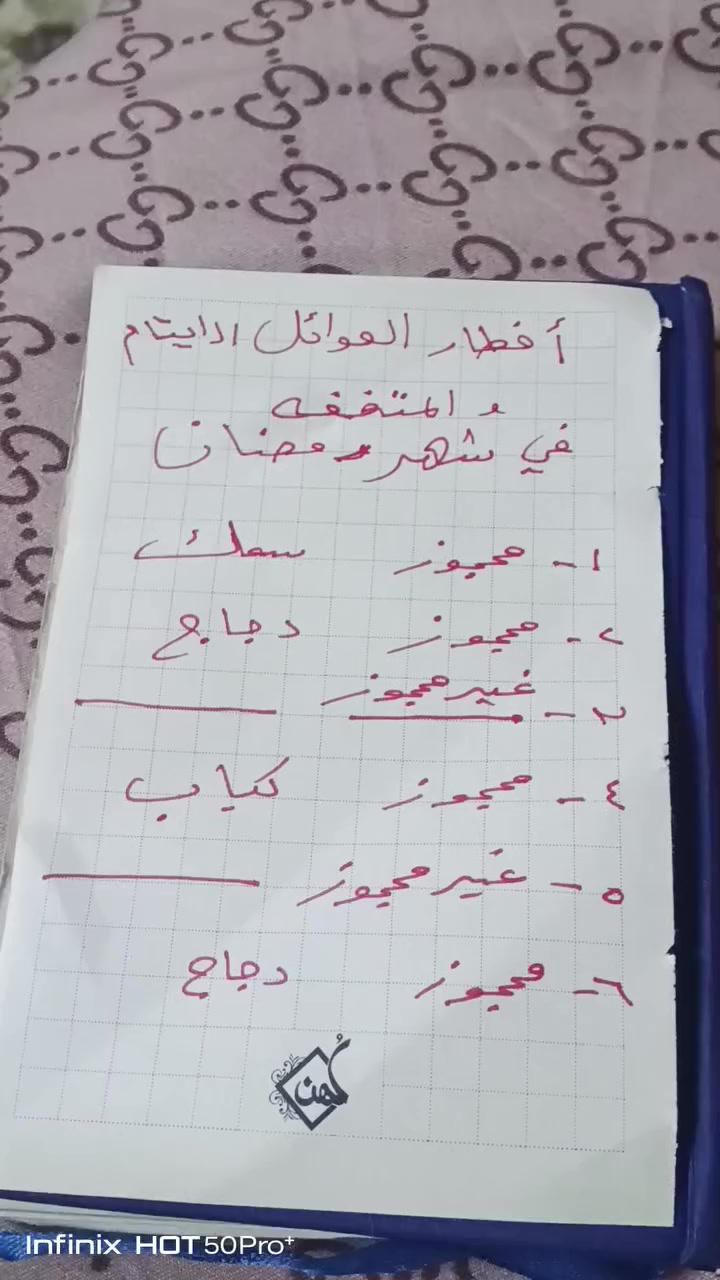 أفطار العوائل الايتام
و المتعففه
في شهر رمضان
١- محجوز سمك
٢- محجوز دجاج
٣- غير محجوز
٤- محجوز كباب
٥- غير محجوز
٦- محجوز دجاج
كهن
Infinix HOT 50Pro+